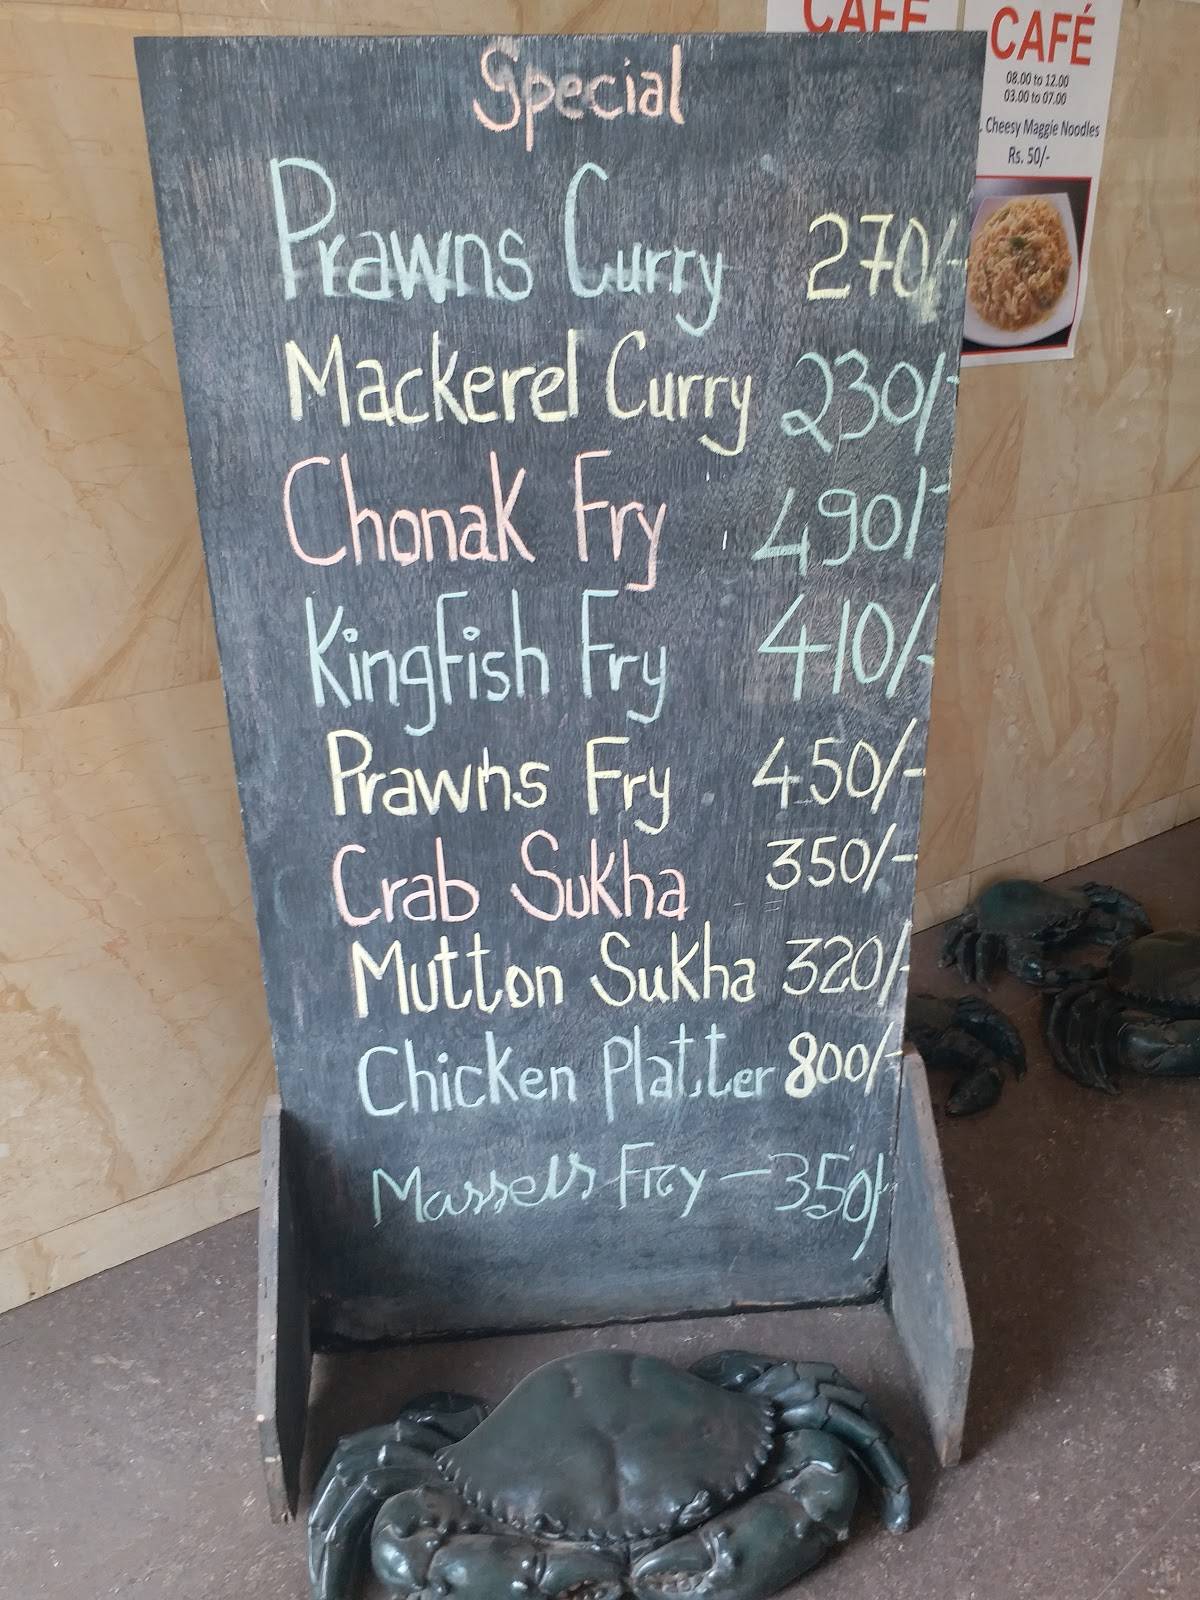 Special
Prawns Curry 270/-
Mackerel Curry 230/-
Chonak Fry 490/-
Kingfish Fry 410/-
Prawns Fry 450/-
Crab Sukha 350/-
Mutton Sukha 320/-
Chicken Platter 800/-
Massels Fry - 350/-
CAFE
CAFÉ
08.00 to 12.00
03.00 to 07.00
. Cheesy Maggie Noodles
Rs. 50/-